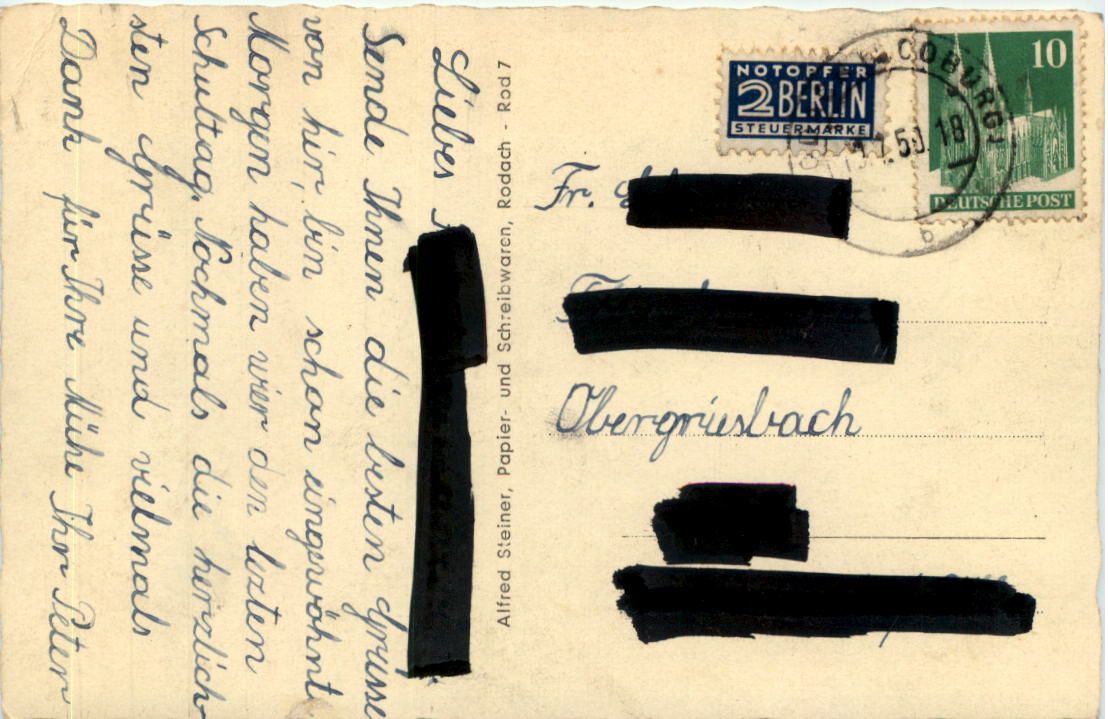 Liebes
Sende Ihnen die besten Grüsse
von hir, bin schon eingewöhnt
Morgen haben wier den lezten
Schultag. Nochmals die herzlich-
sten Grüsse und vielmals
Dank für Ihre Mühe Ihr Peter
Alfred Steiner, Papier- und Schreibwaren, Rodach - Rod 7
NOTOPFER
2 BERLIN
STEUERMARKE
COBURG
50.18
b
10
DEUTSCHE POST
Fr.
Obergriesbach